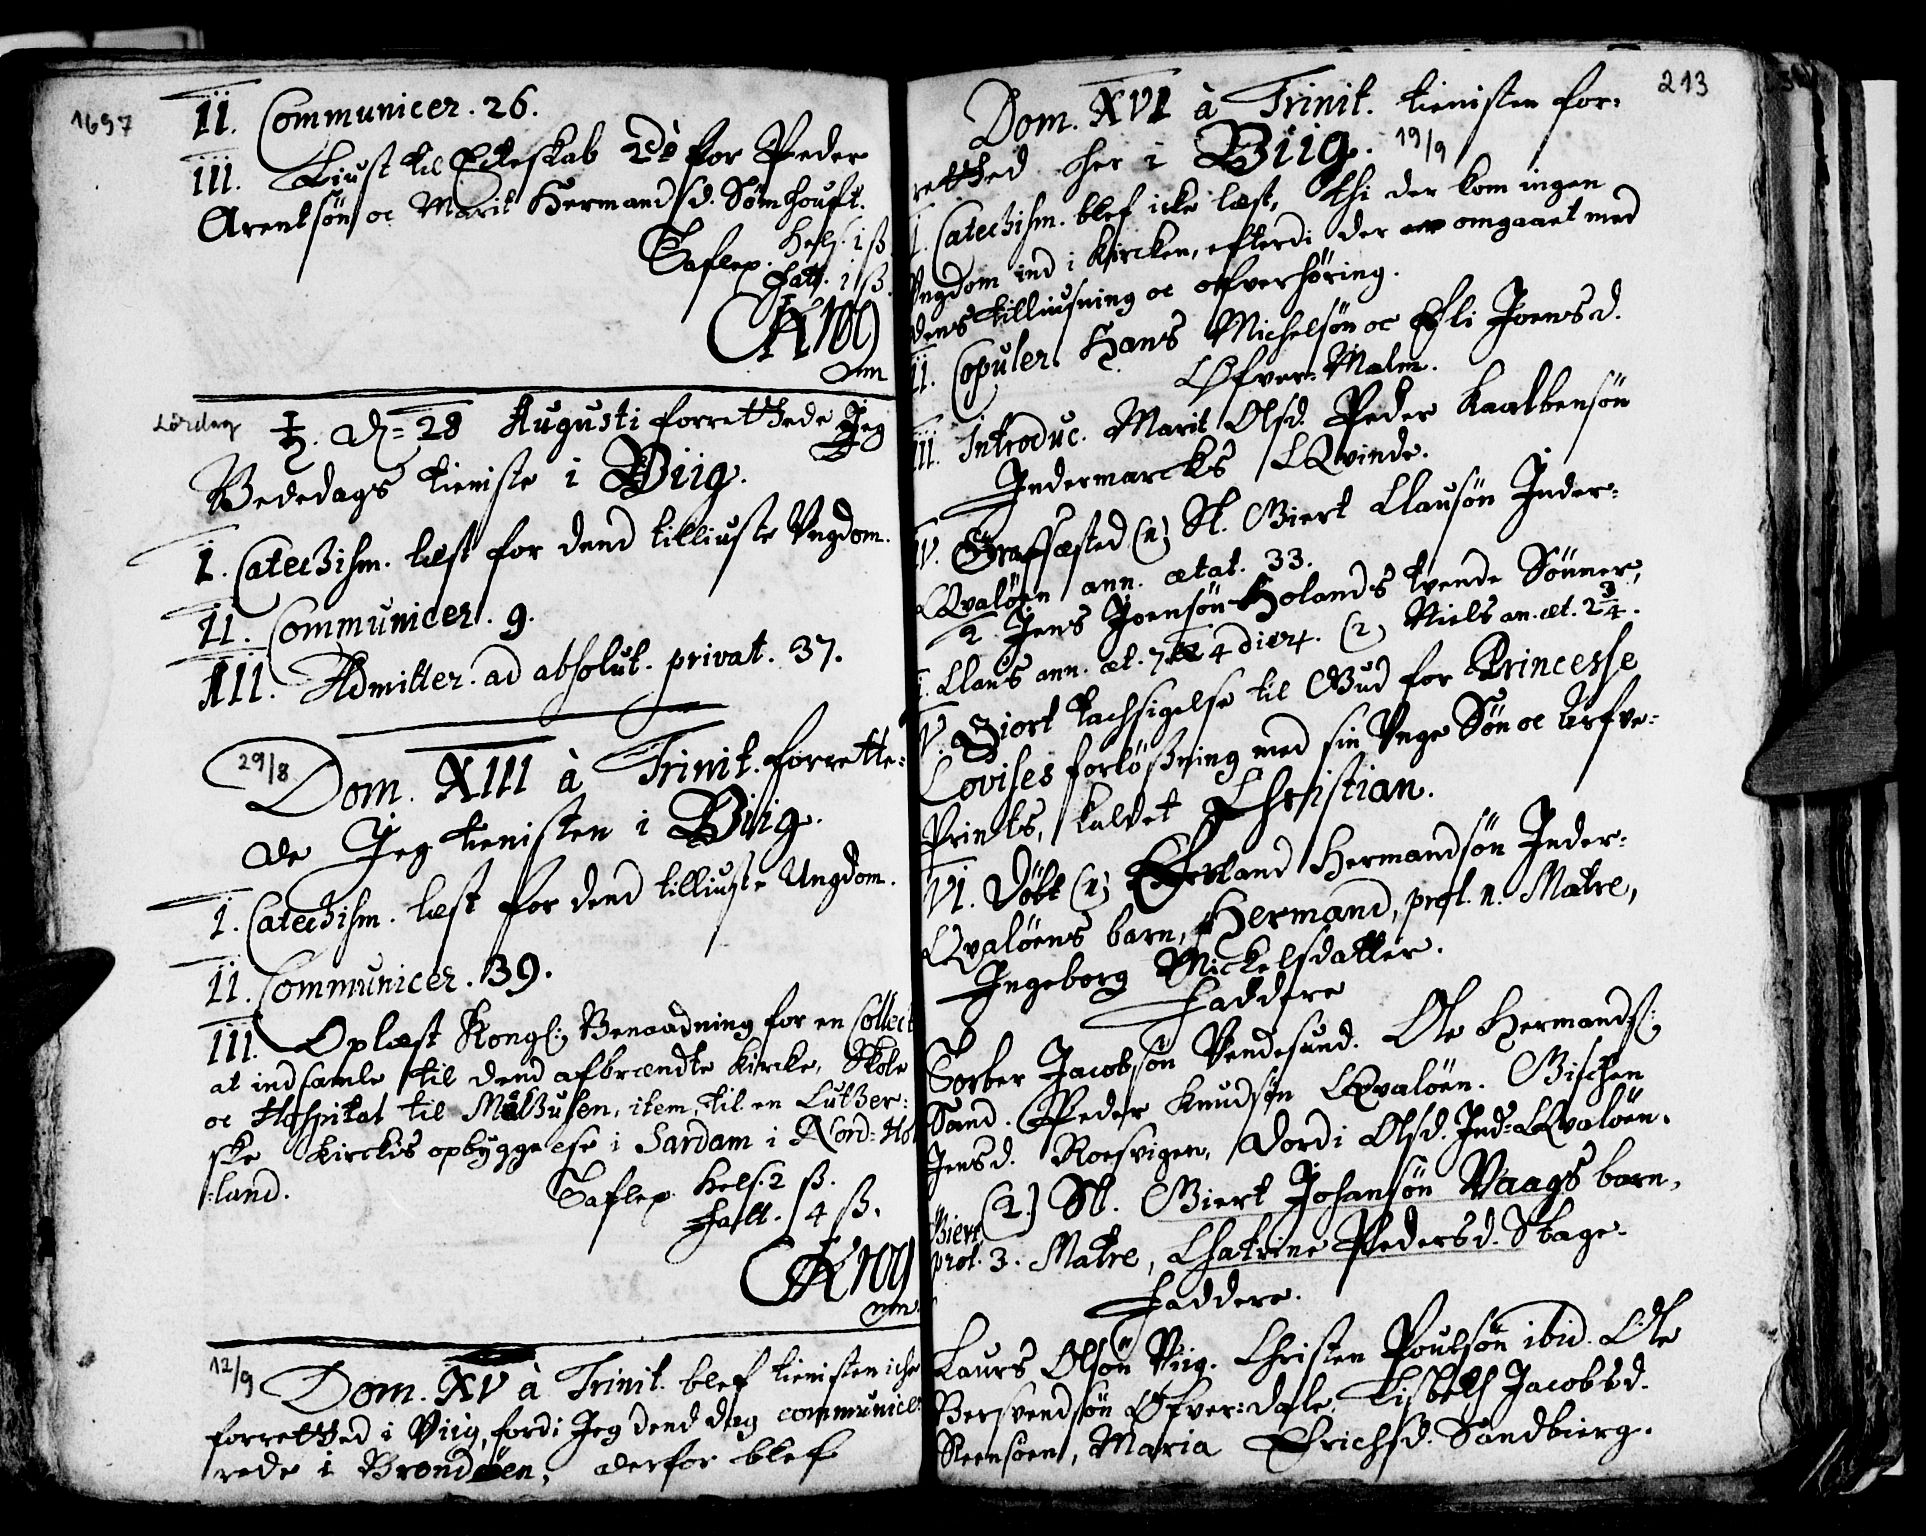 1697
II. Communicer. 26.
III. Liust til Ecteskab 2dò for Peder
Arentsøn oc Marit Hermandsd. Sømhoufs.
Taflep. Hels. 1 ß
Fatt. 1 ß.
Krog
mm
Lördag
♄. d = 28 Augusti forrettede Jeg
Bededags tieniste i Viig.
I. Catechism. læst for dend tilliuste Ungdom.
II. Communicer. 9.
III. Admitter. ad absolut. privat. 37.
29/8
Dom. XIII à Trinit. forrette-
de Jeg tienisten i Viig.
I. Catechism. læst for dend tilliuste Ungdom.
II. Communicer. 39.
III. Oplæst Kongl: Benaadning for en Collect
at indsamle til dend afbrændte Kircke, Skole
oc Hospital til Mülhusen, item, til en Luther-
ske Kirckis opbyggelse i Sardam i Nord-Hol
-land.
Taflep. Hels. 2 ß.
Fatt. 4 ß.
Krog
mm
12/9
Dom. XV à Trinit. blef tienisten iche
forretted i Viig, fordi Jeg dend dag communice-
rede i Brondøen, derfor blef
213
Dom. XVI à Trinit. tienisten for-
retted her i Viig. 19/9
I. Catechism. blef icke læst, thi der kom ingen
Ungdom ind i Kircken, efterdi der omgaaet med
dens tilliusning oc ofverhøring.
II. Copuler. Hans Michelsøn oc Eli Joensd.
Øfver-Malm.
III. Introduc. Marit Olsd. Peder Kaalbensøn
Indermarcks Qvinde.
IV. Grafsæsted (1) Sl. Giert Clausøn Inder-
Qvaløen ann. ætat. 33.
2. Jens Joensøn Holands tvende Sønner,
1. Claus ann. æt. 7. 4 dier. (2) Niels an. æt. 2 3/4.
V. Giort tachsigelse til Gud for Princesse
Lovises forløßning med sin Unge Søn oc Arfve-
Prints, kaldet Christian.
VI. Døbt (1) Erland Hermandsøn Inder-
Qvaløens barn, Hermand, prol. n. Matre,
Ingeborg Mickelsdatter.
Faddere
Torber Jacobsøn Vendesund. Ole Hermands:
Sand. Peder Knudsøn Qvaløen. Gischen
Jensd. Roesvigen, Dordi Olsd. Ind-Qvaløen.
(2) Sl. Giert Johansøn Vaags barn,
Giert
prol. 3. Matre, Chatrine Pedersd. Stage.
Faddere.
Laurs Olsøn Viig. Christen Poulsøn ibid. Ole
Bersvendsøn Øfver-dale, Lisbeth Jacobsd.
Steensøen, Maria Erichsd. Sandbierg.